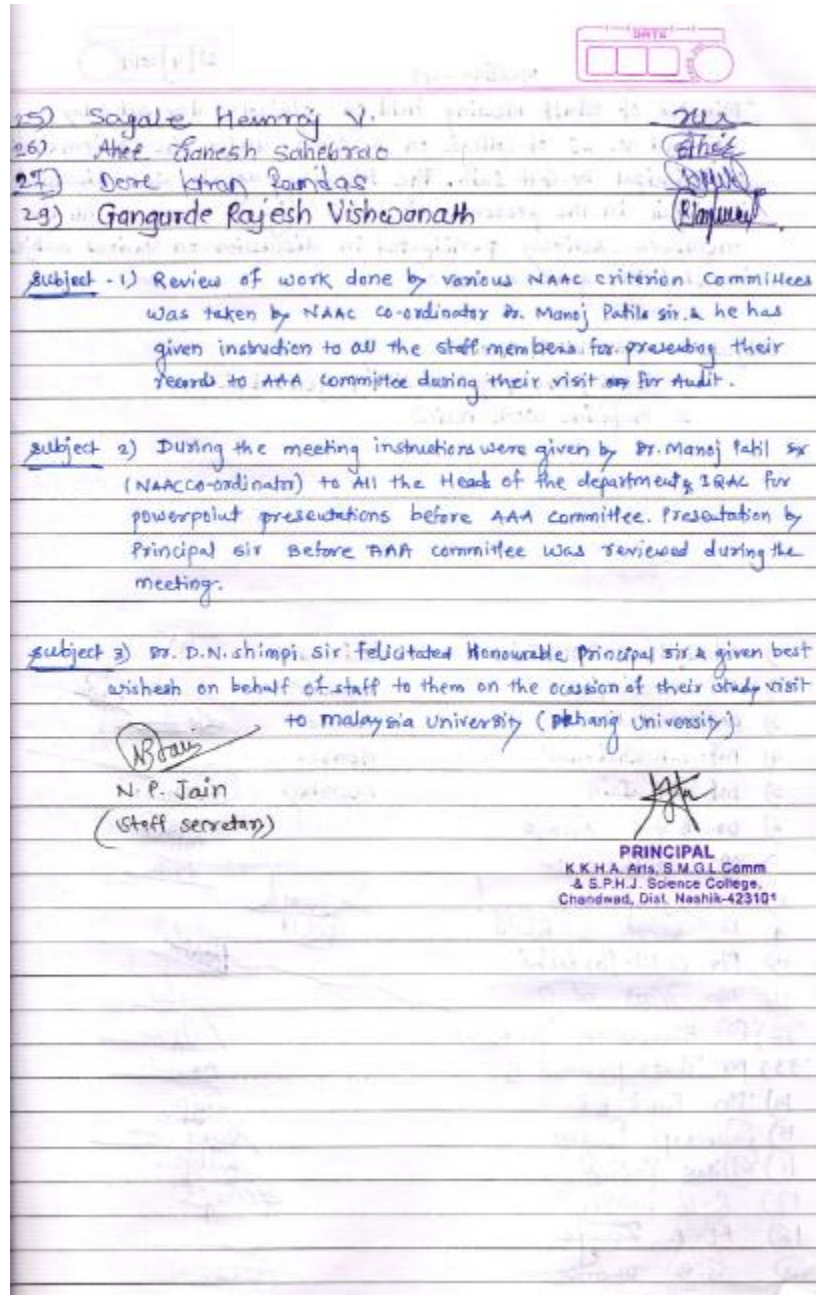 DATE
25) Sagale Hemraj V.
26) Ahee Ganesh Sahebrao
27) Dere Kiran Ramdas
29) Gangurde Rajesh Vishwanath
Subject - 1) Review of work done by various NAAC criterion Committees
was taken by NAAC Co-ordinator Dr. Manoj Patils sir. & he has
given instruction to all the staff members for presenting their
records to AAA committee during their visit for Audit.
Subject 2) During the meeting instructions were given by Dr. Manoj Patil sir
(NAAC Co-ordinator) to All the Heads of the department & IQAC for
powerpoint presentations before AAA committee. Presentation by
Principal sir Before AAA committee was reviewed during the
meeting.
Subject 3) Dr. D.N. shimpi sir felicitated Honourable Principal sir & given best
wishesh on behalf of staff to them on the ocassion of their study visit
to malaysia University (Pahang University)
N. P. Jain
(Staff secretary)
PRINCIPAL
K.K.H.A. Arts, S.M.G.L. Comm
& S.P.H.J. Science College,
Chandwad, Dist. Nashik-423101